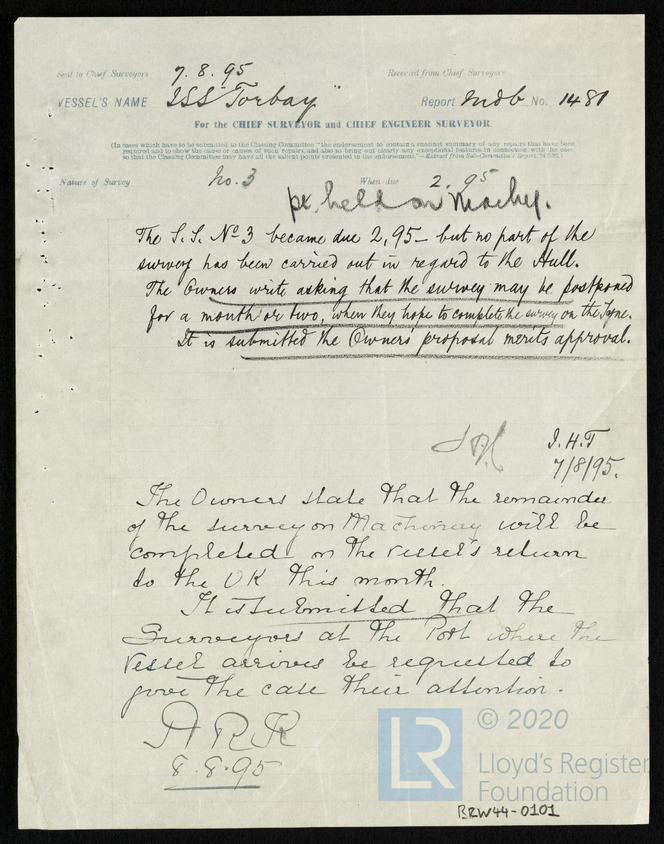 Sent to Chief Surveyors 7.8.95 Received from Chief Surveyors
VESSEL'S NAME SSS "Torbay" Report Mdb No. 1481
For the CHIEF SURVEYOR and CHIEF ENGINEER SURVEYOR.
(In cases which have to be submitted to the Classing Committee "the endorsement to contain a succinct summary of any repairs that have been
required and to show the cause or causes of such repairs, and also to bring out clearly any exceptional features in connection with the case
so that the Classing Committee may have all the salient points presented in the endorsement."—Extract from Sub-Committee's Report,
Nature of Survey No. 3 When due 2.95
pt. held on Machy.
The S.S. No 3 became due 2,95 - but no part of the
survey has been carried out in regard to the Hull.
The Owners write asking that the survey may be postponed
for a month or two, when they hope to complete the survey on the Tyne.
It is submitted the Owners' proposal merits approval.
J.H.T
7/8/95.
The Owners state that the remainder
of the survey on Machinery will be
completed on the vessel's return
to the UK this month.
It is submitted that the
Surveyors at the Port where the
vessel arrives be requested to
give the case their attention.
A R K
8.8.95
LR
© 2020
Lloyd's Register
Foundation
BRW44-0101